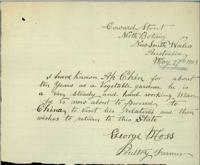 Edward Street
Nth Botany
New South Wales
Australia
May 27th
I have known Ah Chin for about
ten years as a Vegetable gardener he is
a very steady and hard working Man
he is now about to proceed to
China to visit his Relatives and then
wishes to return to this State
George Moss
Poultry Farmer